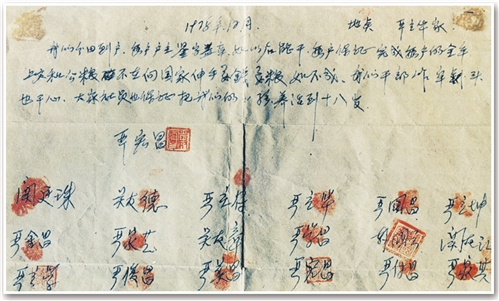 1978年12月. 地点 严立华家
我们分田到户,每户户主签字盖章,如以后能干,每户保证完成每户的全年
上交和公粮,不在向国家伸手要钱要粮,如不成,我们干部作牢刹头
也干心,大家社员也保证把我们的小孩养活到十八岁
严宏昌
关廷珠 关友德 严立符 严立华 严国昌 严立坤
严金昌 严家芝 关友章 严学昌 韩国云 关友江
严立学 严俊昌 严美昌 严宏昌 严付昌 严家其